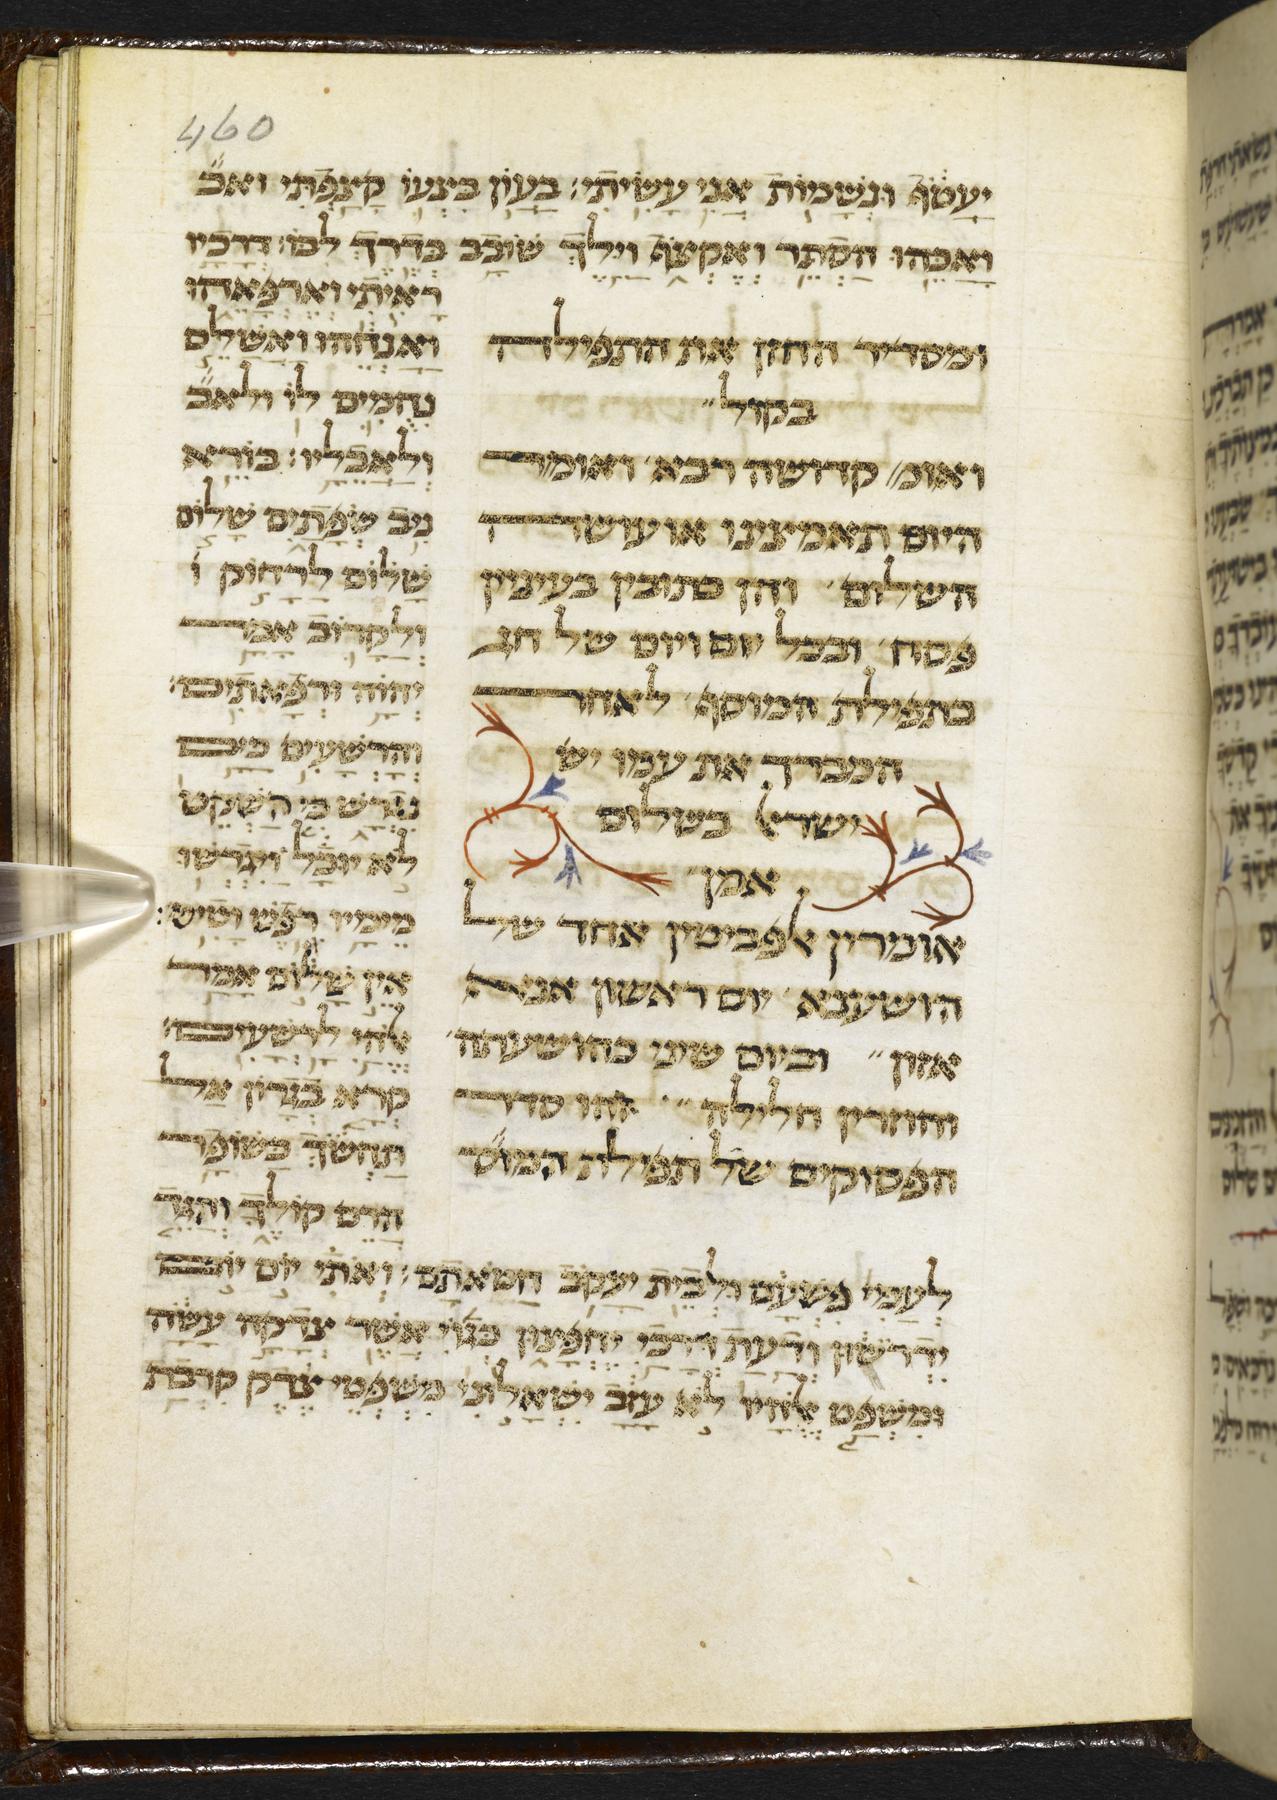 460
יעטוף ונשמות אני עשיתי: בעון בצעו קצפתי ואכ
ואכהו הסתר ואקצוף וילך שובב בדרך לבו: דרכיו
ראיתי וארפאהו
ואנחהו ואשלם
נחמים לו ולאב
ולאבליו: בורא
ניב שפתים שלום
שלום לרחוק ו
ולקרוב אמר
יהוה ורפאתיו:
והרשעים כים
נגרש כי השקט
לא יוכל ויגרשו
מימיו רפש וטיט:
אין שלום אמר
אלהי לרשעים:
קרא בגרון אל
תחשך כשופר
הרם קולך והגד
ומסדיר החזן את התפילה
בקול״
ואומ׳ קדושה רבא׳ ואומר
היום תאמיצנו או עושה
השלום׳ והן כתובין בעינין
פסח׳ ובכל יום ויום של חג
בתפילת המוסף׳ לאחר
המברך את עמו יש
ישראל בשלום
אמן
אומרין אלפביטין אחד של
הושענא׳ יום ראשון אנא
אזון״ וביום שיני כהושעתה׳
וחוזרין חלילה״׳ זהו סדר
הפסוקים של תפילת המוס״
לעמי פשעם ולבית יעקב חטאתם: ואתי יום יום
ידרשון ודעת דרכי יחפצון כגוי אשר צדקה עשה
ומשפט אלהיו לא עזב ישאלוני משפטי צדק קרבת